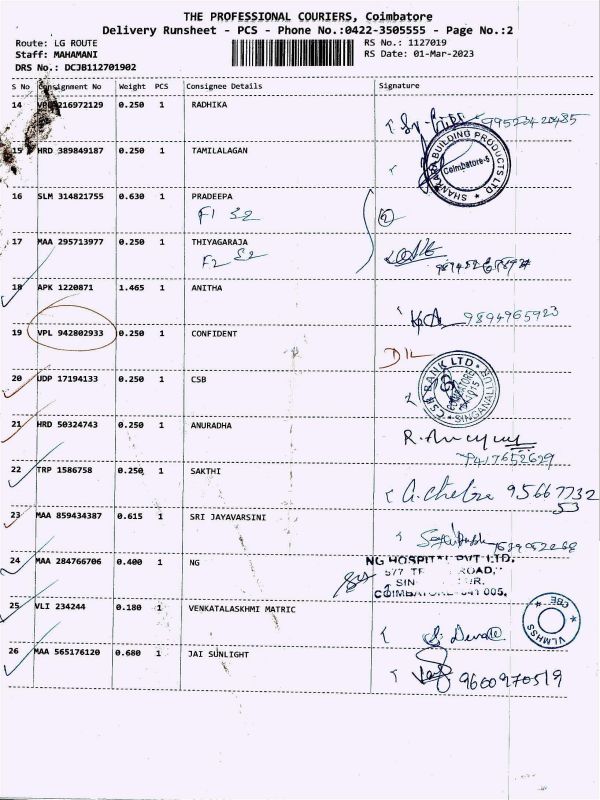 THE PROFESSIONAL COURIERS, Coimbatore
Delivery Runsheet - PCS - Phone No.:0422-3505555 - Page No.:2
Route: LG ROUTE RS No.: 1127019
Staff: MAHAMANI RS Date: 01-Mar-2023
DRS No.: DCJB112701902
S No Consignment No Weight PCS Consignee Details Signature
14 216972129 0.250 1 RADHIKA
15 HRD 389849187 0.250 1 TAMILALAGAN
SHANKARA BUILDING PRODUCTS LTD
Coimbatore-5
16 SLM 314821755 0.630 1 PRADEEPA
F1 S2 2
17 MAA 295713977 0.250 1 THIYAGARAJA
F2 S2
18 APK 1220871 1.465 1 ANITHA
9894965923
19 VPL 942802933 0.250 1 CONFIDENT
DIL
20 UDP 17194133 0.250 1 CSB
CSB BANK LTD. SINGANALLUR
COIMBATORE
21 HRD 50324743 0.250 1 ANURADHA
9417652629
22 TRP 1586758 0.250 1 SAKTHI
95667732
53
23 MAA 859434387 0.615 1 SRI JAYAVARSINI
24 MAA 284766706 0.400 1 NG
NG HOSPITAL PVT LTD,
577 ROAD,
COIMBATORE-641 005.
25 VLI 234244 0.180 1 VENKATALASKHMI MATRIC
VLMHSS CBE
26 MAA 565176120 0.680 1 JAI SUNLIGHT
9600970519